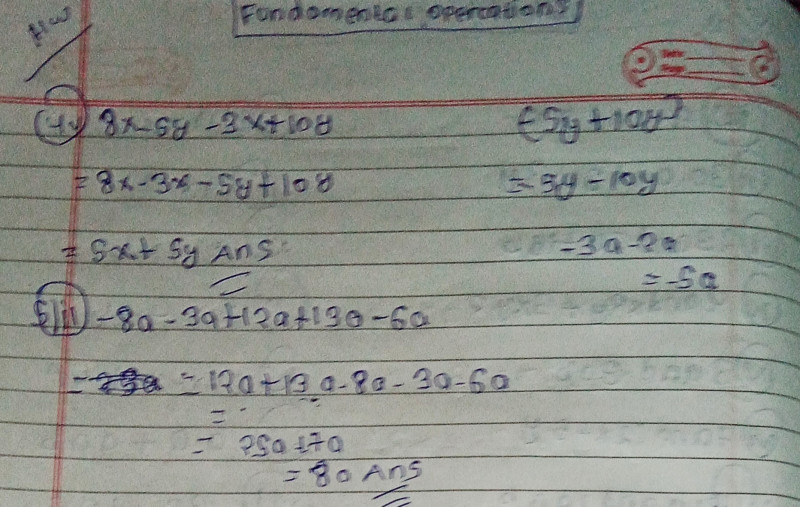 HW
Fundamental operations
(4) 8x-5y-3x+10y (-5y+10y)
= 8x-3x-5y+10y = -5y+10y
= 5x+5y Ans. -3a-2a
= -5a
5) ii) -8a-3a+12a+13a-6a
= 12a+13a-8a-3a-6a
=
= 25a+7a
= 8a Ans